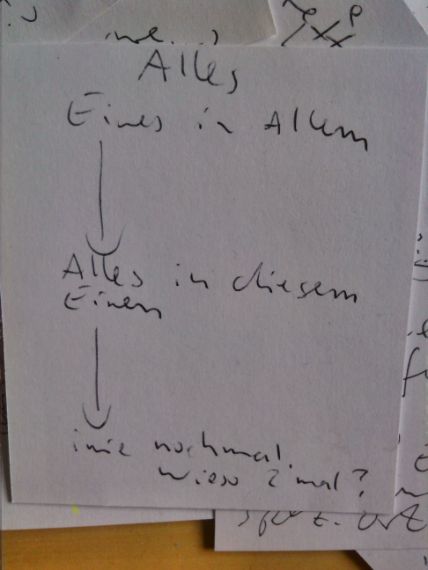 Alles
Eines in Allem
Alles in diesem
Einen
nochmal.
wieso 2 mal?